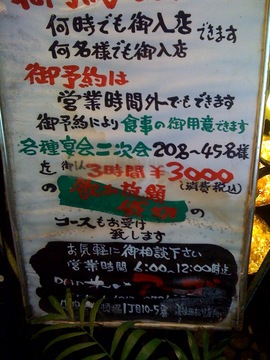 何時でも御入店できます
何名様でも御入店
御予約は
営業時間外でもできます
御予約により食事の御用意できます
各種宴会二次会 20名~45名様
迄 御1人 3時間 ¥3000
の 飲み放題 (消費税込)
の
コースもお受け
致します
お気軽に御相談下さい
営業時間 6:00~12:00
1丁目10-5